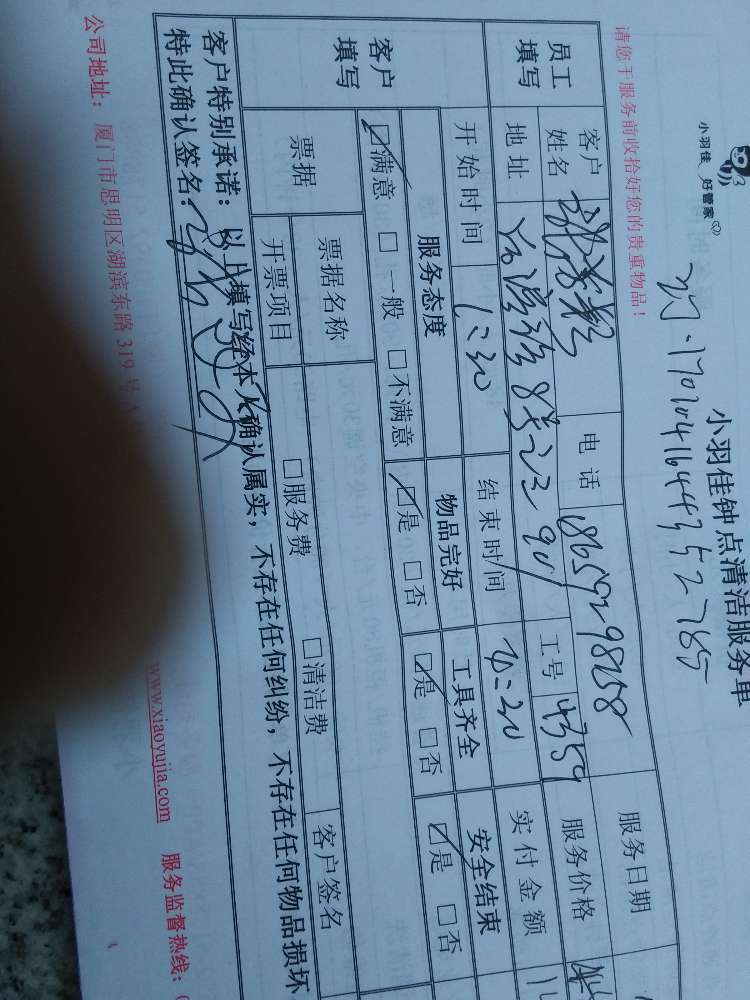 小羽佳 好管家
小羽佳钟点清洁服务单
1701041644352765
请您于服务前收拾好您的贵重物品!
员工填写 客户姓名 电话 18659298158 服务日期
地址 工号 4359 服务价格
开始时间 1:30 结束时间 4:30 实付金额
客户填写 服务态度 物品完好 工具齐全 安全结束
☑满意 □一般 □不满意 ☑是 □否 ☑是 □否 ☑是 □否
票据 票据名称 客户签名
开票项目 □服务费 □清洁费
客户特别承诺:以上填写经本人确认属实,不存在任何纠纷,不存在任何物品损坏
特此确认签名:
公司地址:厦门市思明区湖滨东路319号 www.xiaoyujia.com 服务监督热线: